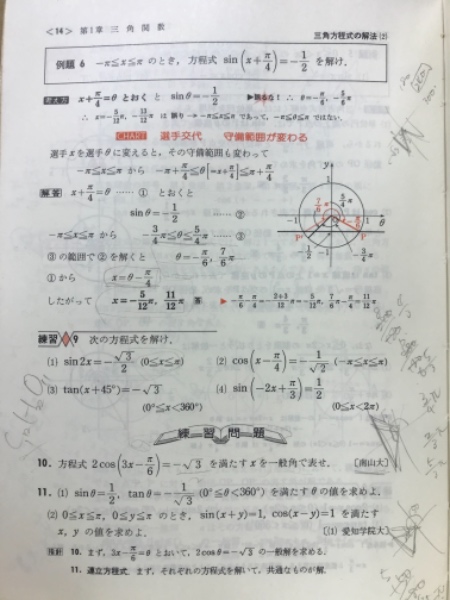 <14> 第1章 三角関数
三角方程式の解法(2)
例題 6 −π≦x≦π のとき，方程式 sin(x+π/4)=−1/2 を解け．
考え方 x+π/4=θ とおくと sinθ=−1/2 ▶誤るな! ∴ θ=−π/6, 5/6π
∴ x=−5/12π, −13/12π は 誤り → −π≦x≦π であって，−π≦θ≦π ではない．
CHART 選手交代 守備範囲が変わる
選手 x を選手 θ に変えると，その守備範囲も変わって
−π≦x≦π から −π+π/4≦θ|=x+π/4|≦π+π/4
解答 x+π/4=θ …… ① とおくと
sinθ=−1/2 …… ②
−π≦x≦π から −3/4π≦θ≦5/4π …… ③
③の範囲で②を解くと θ=−π/6, 7/6π
①から x=θ−π/4
したがって x=−5/12π, 11/12π 答 ▶ −π/6−π/4=−2+3/12π=−5/12π, 7/6π−π/4=11/12π
y
1
7/6π
5/4π
−1
1
θ
P'
P
−π/6
−1
−3/4π
練習 9 次の方程式を解け．
(1) sin2x=−√3/2 (0≦x≦π)
(2) cos(x−π/4)=−1/√2 (−π≦x≦π)
(3) tan(x+45°)=−√3
(0°≦x<360°)
(4) sin(−2x+π/3)=1/2
(0≦x<2π)
練習問題
10. 方程式 2cos(3x−π/6)=−√3 を満たす x を一般角で表せ． 〔南山大〕
11. (1) sinθ=1/2, tanθ=−1/√3 (0°≦θ<360°) を満たす θ の値を求めよ．
(2) 0≦x≦π, 0≦y≦π のとき，sin(x+y)=1, cos(x−y)=1 を満たす
x, y の値を求めよ． 〔(1) 愛知学院大〕
指針 10. まず，3x−π/6=θ とおいて，2cosθ=−√3 の一般解を求める．
11. 連立方程式 まず，それぞれの方程式を解いて，共通なものが解．